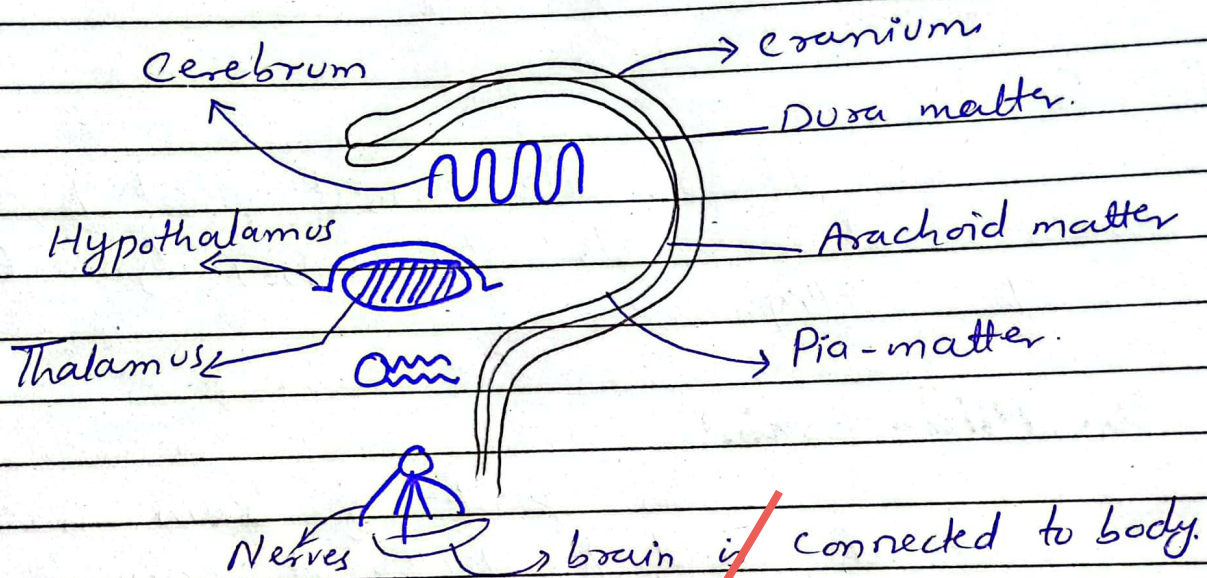 Cerebrum
Cranium
Dura matter.
Hypothalamus
Arachoid matter
Thalamus
Pia-matter.
Nerves
brain is connected to body.